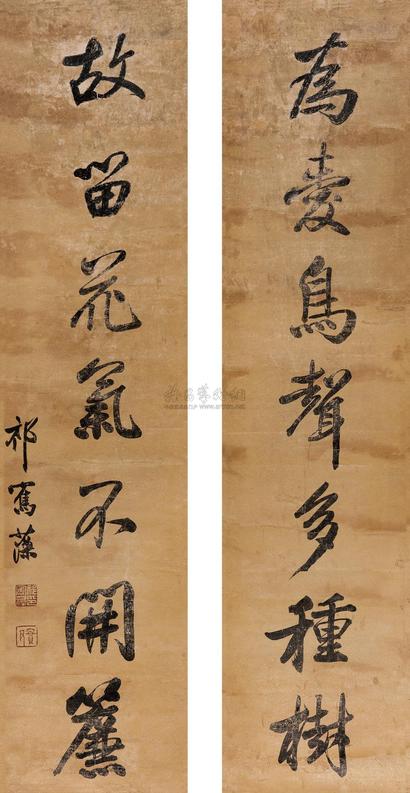 為愛鳥聲多種樹
故留花氣不開簾
祁寯藻